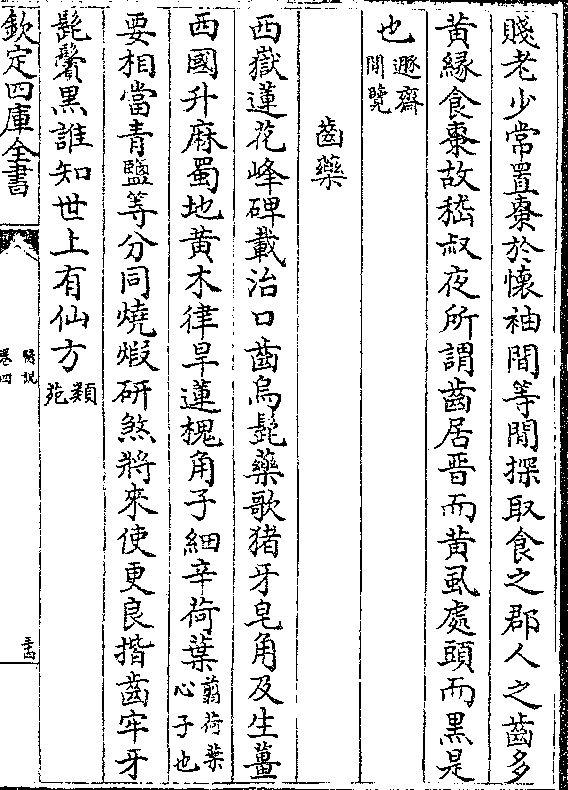 賤老少常置棗於懷袖間等閒探取食之郡人之齒多
黄緣食棗故嵇叔夜所謂齒居晋而黄虱處頭而黑是
也遯齋閒覽
齒藥
西嶽蓮花峰碑載治口齒烏髭藥歌猪牙皂角及生薑
西國升麻蜀地黄木律旱蓮槐角子細辛荷葉剪荷葉心子也
要相當青鹽等分同燒煆研煞將來使更良揩齒牢牙
髭鬢黑誰知世上有仙方類苑
欽定四庫全書
醫說
卷四